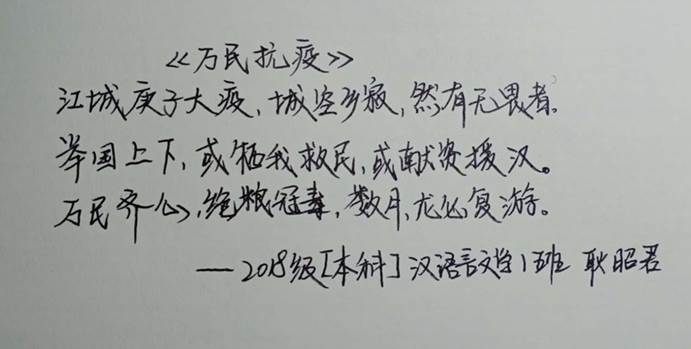 《万民抗疫》
江城庚子大疫,城空乡寂,然有无畏者。
举国上下,或牺我救民,或献资援汉。
万民齐心,绝粮冠毒,数月,尤必复游。
——2018级[本科]汉语言文学1班 耿昭君